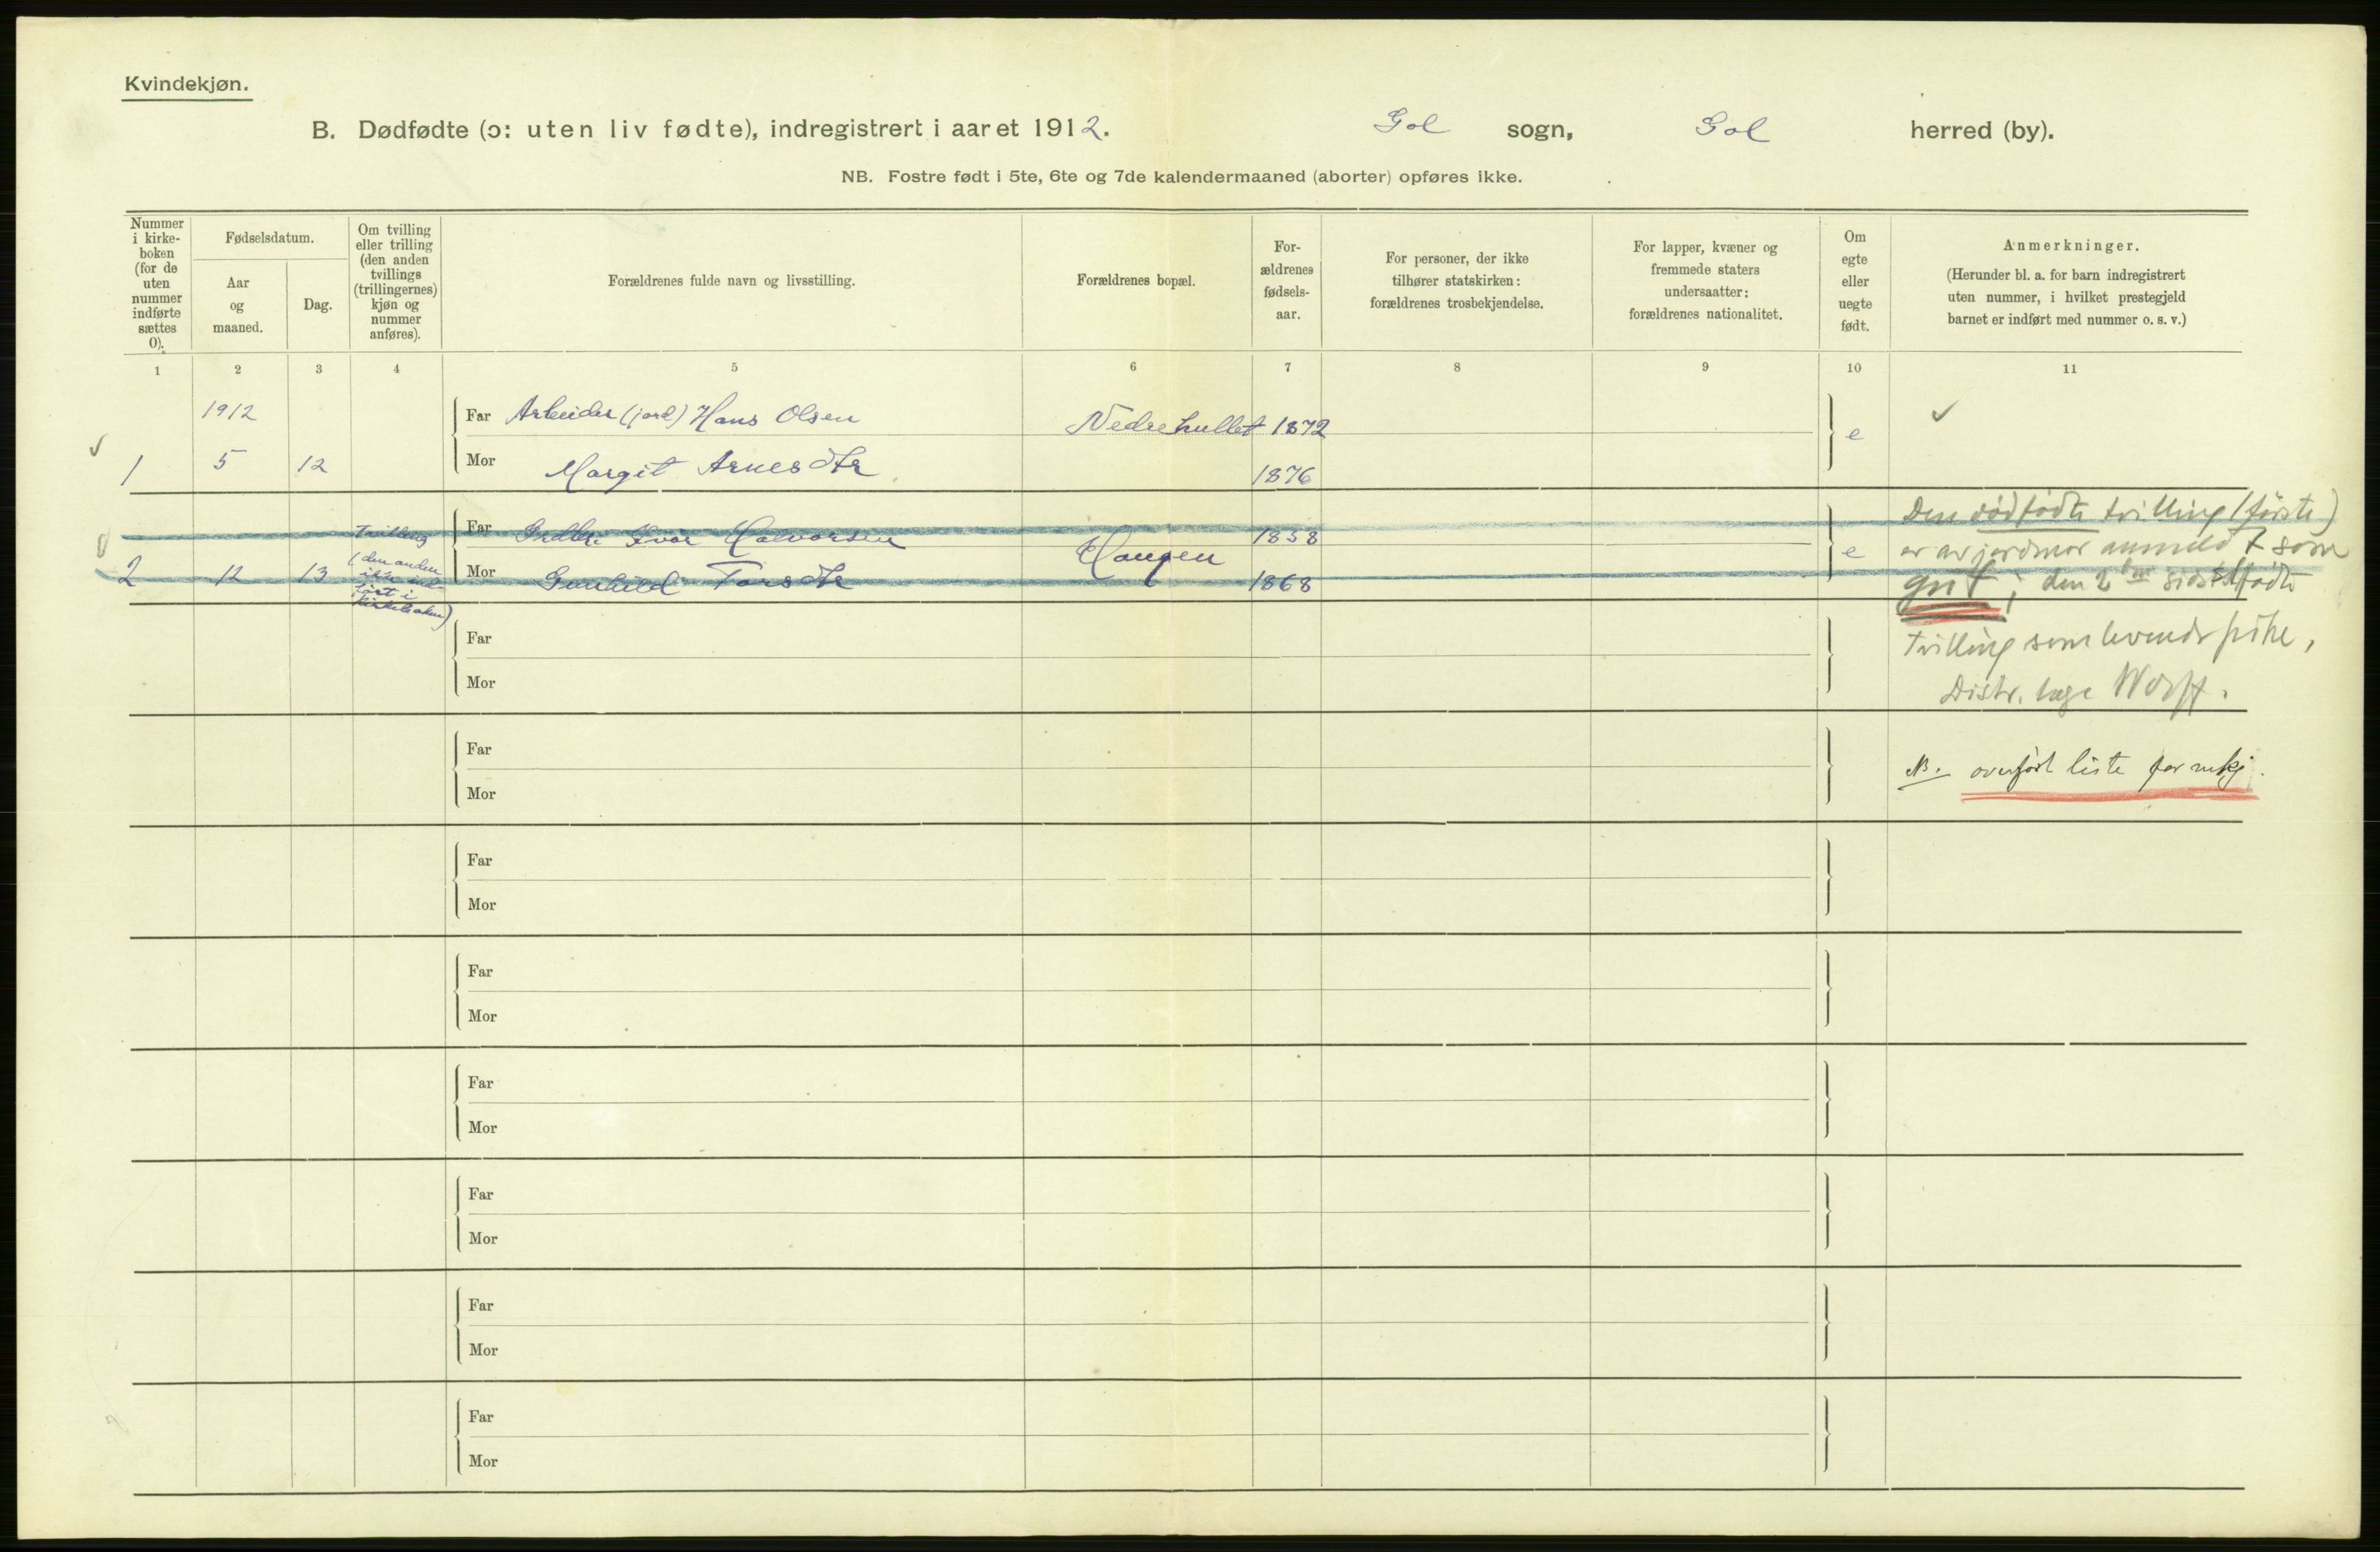 Kvindekjøn.
B. Dødfødte (ɔ: uten liv fødte), indregistrert i aaret 1912. Gol sogn, Gol herred (by).
NB. Fostre født i 5te, 6te og 7de kalendermaaned (aborter) opføres ikke.
Nummer
i kirke-
boken
(for de
uten
nummer
indførte
sættes
0).
Fødselsdatum.
Aar
og
maaned.
Dag.
Om tvilling
eller trilling
(den anden
tvillings
(trillingernes)
kjøn og
nummer
anføres).
Forældrenes fulde navn og livsstilling.
Forældrenes bopæl.
For-
ældrenes
fødsels-
aar.
For personer, der ikke
tilhører statskirken:
forældrenes trosbekjendelse.
For lapper, kvæner og
fremmede staters
undersaatter:
forældrenes nationalitet.
Om
egte
eller
uegte
født.
Anmerkninger.
(Herunder bl. a. for barn indregistrert
uten nummer, i hvilket prestegjeld
barnet er indført med nummer o. s. v.)
1 2 3 4 5 6 7 8 9 10 11
1912 Far Arbeider (jord) Hans Olsen Nedrehullet 1872 e ✓
✓ 1 5 12 Mor Margit Arnesdtr 1876
Tvilling
(den anden
ikke ind-
ført i
kirkeboken)
Far Ivar Halvorsen Haugen 1858 e
2 12 13 Mor Gunhild Torsdtr 1868
Den dødfødte tvilling (første)
er av jordmor anmeldt som
gut; den 2den sidstfødte
tvilling som levende pike,
Distr. læge
NB. overført liste for mkj.
Far
Mor
Far
Mor
Far
Mor
Far
Mor
Far
Mor
Far
Mor
Far
Mor
Far
Mor